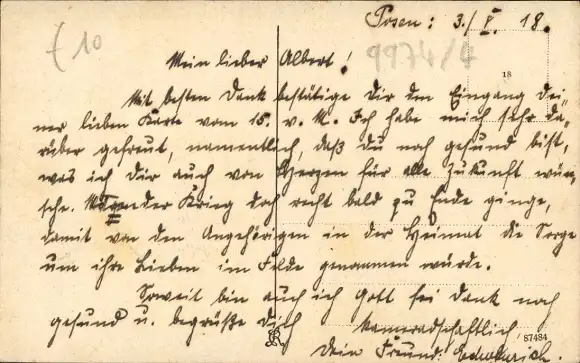 Posen: 3./V. 18.
£ 10
9974/4
18
Mein lieber Albert!
Mit besten Dank bestätige Dir den Eingang dei-
ner lieben Karte vom 15. v. M. Ich habe mich sehr da-
rüber gefreut, namentlich, daß du noch gesund bist,
was ich dir auch von Herzen für alle Zukunft wün-
sche. der Krieg doch recht bald zu Ende ginge,
damit von den Angehörigen in der Heimat die Sorge
um ihre Lieben im Felde genommen würde.
Soweit bin auch ich Gott sei Dank noch
gesund u. begrüße dich kameradschaftlich
87484
Dein Freund: